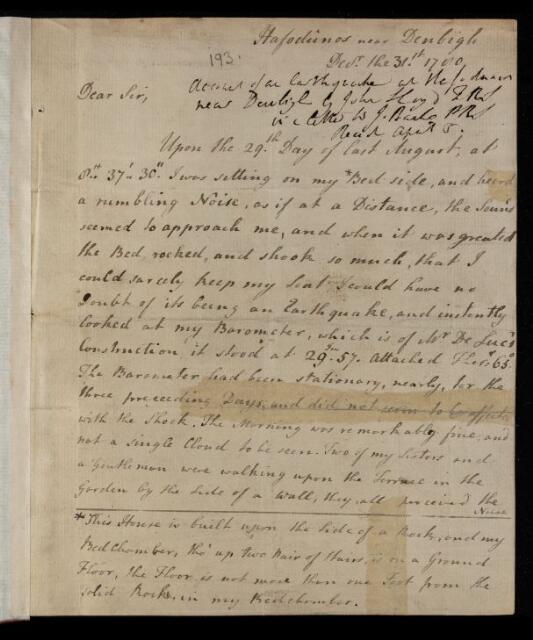 Hafodunos near Denbigh
Decr. the 31st. 1780.
193.
Account of an Earthquake at Hafodunos
Dear Sir,
near Denbigh by John Lloyd F.R.S.
in a letter to J. Banks P.R.S
Read April 5.
Upon the 29.th Day of last August, at
8.h 37' 30". I was setting on my *Bed side, and heard
a rumbling Noise, as if at a Distance, the Sound
seemed to approach me, and when it was greatest
the Bed, rocked, and shook so much, that I
could sarcely keep my Seat. I could have no
Doubt of its being an Earthquake, and instantly
looked at my Barometer, which is of Mr. De Luc's
Construction, it stood at 29.in57. Attached Ther. 65.
The Barometer had been stationary, nearly, for the
three preceeding Days, and did not seem to be affected
with the Shock. The Morning was remarkably fine, and
not a single Cloud to be seen. Two of my Sisters and
a Gentleman were walking upon the Terrace in the
Garden by the Side of a Wall, they all perceived the
Noise
*This House is built upon the Side of a Rock, and my
Bedchamber, tho' up two Pair of Stairs, is on a Ground
Floor, the Floor is not more than one Foot from the
solid Rock, in my Bedchamber.